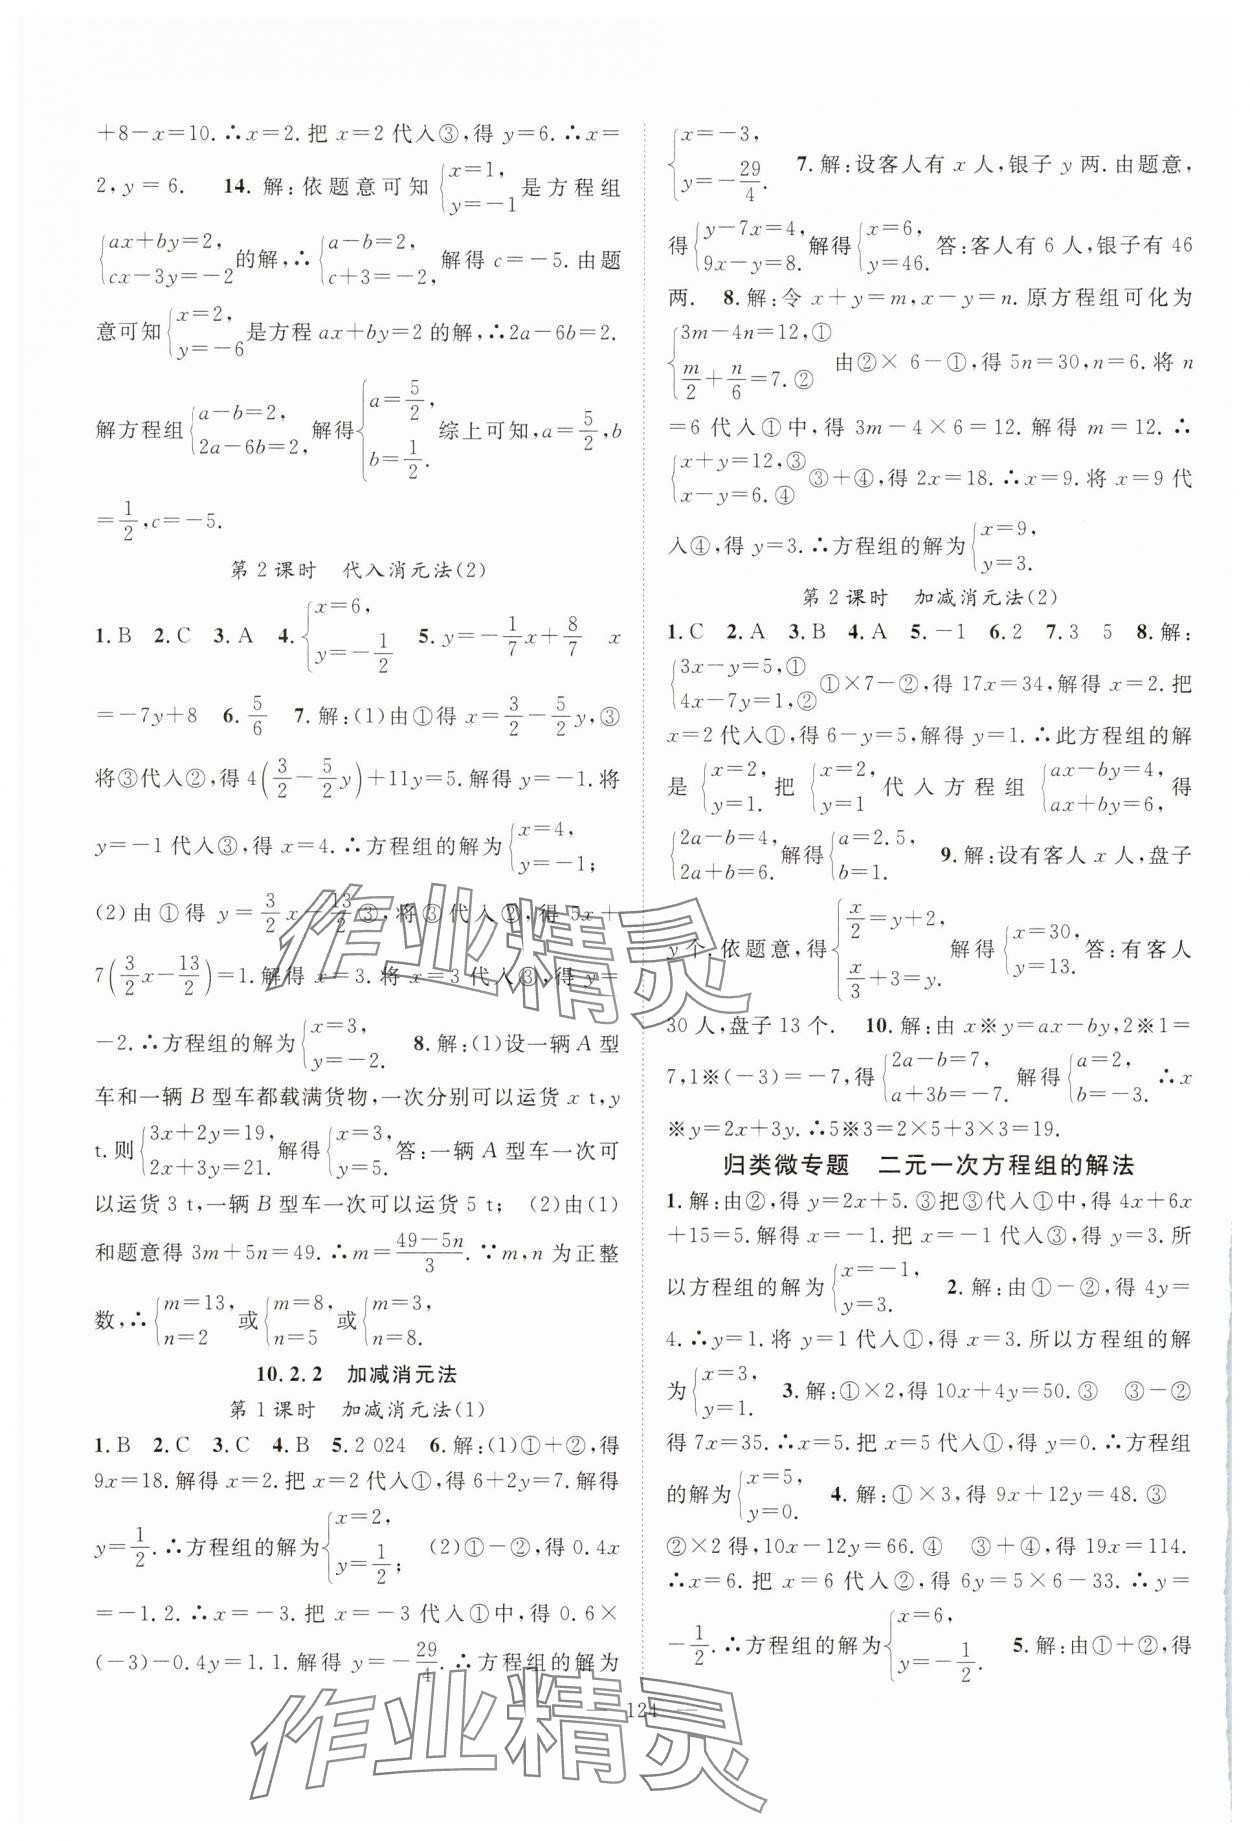 +8-x=10.∴x=2.把 x=2 代入③,得 y=6.∴x=
2,y=6. 14. 解:依题意可知 {x=1, y=-1 是方程组
{ax+by=2, cx-3y=-2 的解,∴{a-b=2, c+3=-2, 解得 c=-5.由题
意可知{x=2, y=-6 是方程 ax+by=2 的解,∴2a-6b=2.
解方程组{a-b=2, 2a-6b=2, 解得{a=5/2, b=1/2. 综上可知,a=5/2,b
=1/2,c=-5.
第 2 课时 代入消元法(2)
1. B 2. C 3. A 4. {x=6, y=-1/2 5. y=-1/7x+8/7 x
=-7y+8 6. 5/6 7. 解:(1)由①得 x=3/2-5/2y,③
将③代入②,得 4(3/2-5/2y)+11y=5.解得 y=-1.将
y=-1 代入③,得 x=4.∴方程组的解为{x=4, y=-1;
(2)由①得 y=3/2x-13/2③,将③代入②,得 5x+
7(3/2x-13/2)=1.解得 x=3.将 x=3 代入③,得 y=
-2.∴方程组的解为{x=3, y=-2. 8. 解:(1)设一辆 A 型
车和一辆 B 型车都载满货物,一次分别可以运货 x t,y
t.则{3x+2y=19, 2x+3y=21. 解得{x=3, y=5. 答:一辆 A 型车一次可
以运货 3 t,一辆 B 型车一次可以运货 5 t; (2)由(1)
和题意得 3m+5n=49.∴m=(49-5n)/3.∵m,n 为正整
数,∴{m=13, n=2 或{m=8, n=5 或{m=3, n=8.
10.2.2 加减消元法
第 1 课时 加减消元法(1)
1. B 2. C 3. C 4. B 5. 2 024 6. 解:(1)①+②,得
9x=18.解得 x=2.把 x=2 代入①,得 6+2y=7.解得
y=1/2.∴方程组的解为{x=2, y=1/2; (2)①-②,得 0.4x
=-1.2.∴x=-3.把 x=-3 代入①中,得 0.6×
(-3)-0.4y=1.1.解得 y=-29/4.∴方程组的解为
{x=-3, y=-29/4. 7. 解:设客人有 x 人,银子 y 两.由题意,
得{y-7x=4, 9x-y=8. 解得{x=6, y=46. 答:客人有 6 人,银子有 46
两. 8. 解:令 x+y=m,x-y=n.原方程组可化为
{3m-4n=12,① m/2+n/6=7.② 由②×6-①,得 5n=30,n=6.将 n
=6 代入①中,得 3m-4×6=12.解得 m=12.∴
{x+y=12,③ x-y=6.④ ③+④,得 2x=18.∴x=9.将 x=9 代
入④,得 y=3.∴方程组的解为{x=9, y=3.
第 2 课时 加减消元法(2)
1. C 2. A 3. B 4. A 5. -1 6. 2 7. 3 5 8. 解:
{3x-y=5,① 4x-7y=1,② ①×7-②,得 17x=34,解得 x=2.把
x=2 代入①,得 6-y=5,解得 y=1.∴此方程组的解
是{x=2, y=1. 把{x=2, y=1 代入方程组{ax-by=4, ax+by=6, 得
{2a-b=4, 2a+b=6. 解得{a=2.5, b=1. 9. 解:设有客人 x 人,盘子
y 个.依题意,得{x/2=y+2, x/3+3=y. 解得{x=30, y=13. 答:有客人
30 人,盘子 13 个. 10. 解:由 x※y=ax-by,2※1=
7,1※(-3)=-7,得{2a-b=7, a+3b=-7. 解得{a=2, b=-3. ∴x
※y=2x+3y.∴5※3=2×5+3×3=19.
归类微专题 二元一次方程组的解法
1. 解:由②,得 y=2x+5.③把③代入①中,得 4x+6x
+15=5.解得 x=-1.把 x=-1 代入③,得 y=3.所
以方程组的解为{x=-1, y=3. 2. 解:由①-②,得 4y=
4.∴y=1.将 y=1 代入①,得 x=3.所以方程组的解
为{x=3, y=1. 3. 解:①×2,得 10x+4y=50.③ ③-②
得 7x=35.∴x=5.把 x=5 代入①,得 y=0.∴方程组
的解为{x=5, y=0. 4. 解:①×3,得 9x+12y=48.③
②×2 得,10x-12y=66.④ ③+④,得 19x=114.
∴x=6.把 x=6 代入②,得 6y=5×6-33.∴y=
-1/2.∴方程组的解为{x=6, y=-1/2. 5. 解:由①+②,得
124
作业精灵
作业精灵